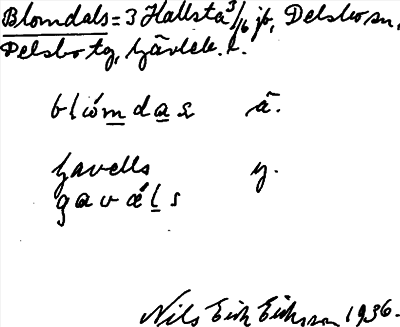 Blomdals = 3 Hallsta 3/16 jb, Delsbo sn,
Delsbo tg, Gävleb. l.
blómdas ä.
gavells y.
gavæls
Nils Erik Eriksson 1936.